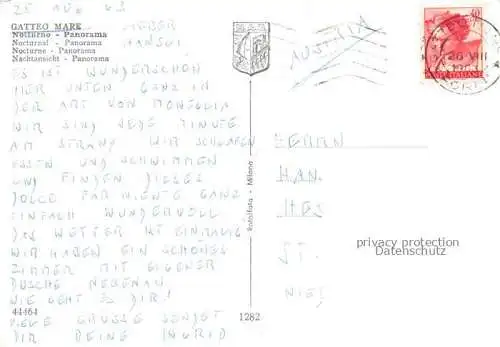 25 AUG 63
GATTEO MARE
Notturno - Panorama
Nocturnal - Panorama
Nocturne - Panorama
Nachtansicht - Panorama
LIEBER
HANSUI
ES IST WUNDERSCHÖN
HIER UNTEN GANZ IN
DER ART VON
WIR SIND JEDE MINUTE
AM STRAND WIR SCHLAFEN
ESSEN UND SCHWIMMEN
UND FINDEN DIESES
DOLCE FAR NIENTE GANZ
EINFACH WUNDERVOLL
DAS WETTER IST EINMALIG
WIR HABEN EIN SCHÖNES
ZIMMER MIT EIGENER
DUSCHE NEBENAN
WIE GEHT ES DIR!
VIELE GRÜSSE SENDET
DIR DEINE INGRID
44464
1282
Rotalfoto - Milano
AUSTRIA
40
POSTE ITALIANE
26 VIII
HERRN
HAN
HES
ST.
privacy protection
Datenschutz